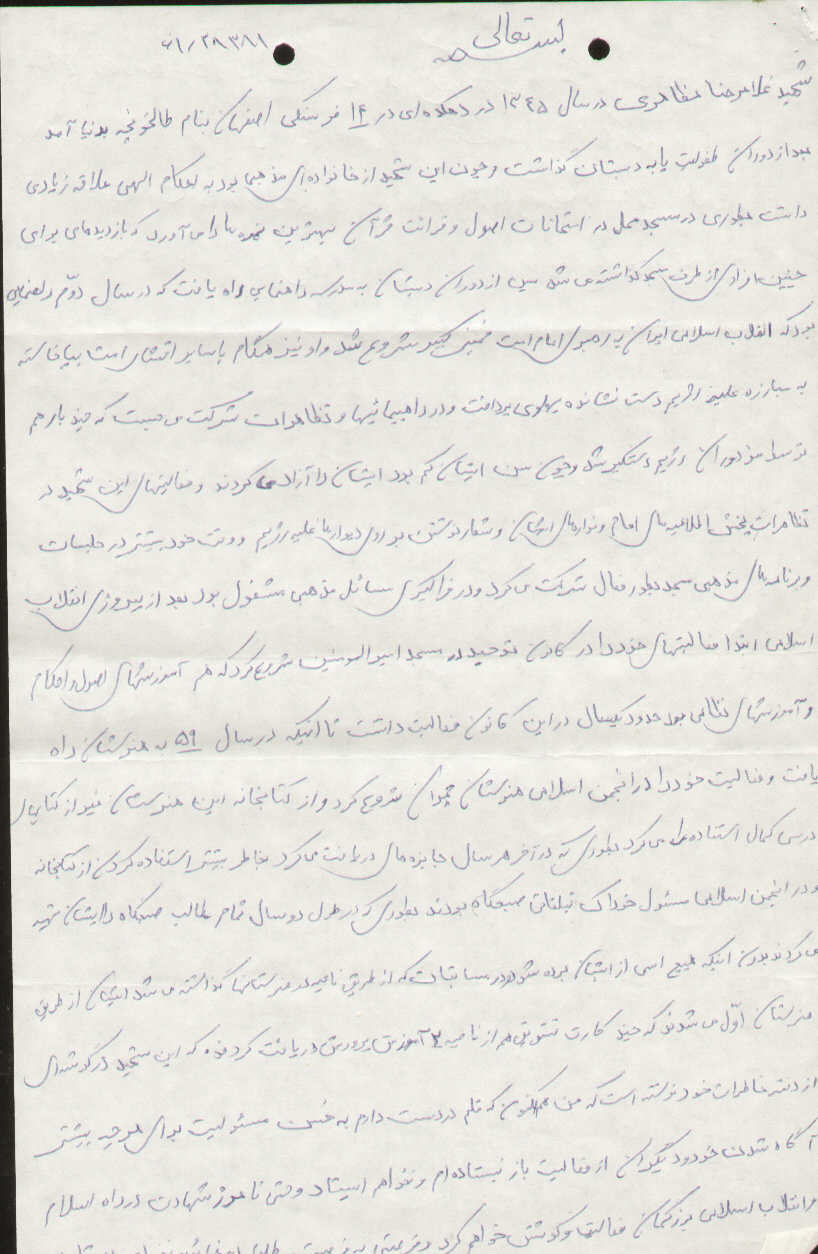 بسمه تعالی
۶۱/۲۸۳۸۱
شهید غلامرضا مظاهری در سال ۱۳۴۵ در دهکده‌ای در ۱۴ فرسنگی اصفهان بنام طالخونچه بدنیا آمد
بعد از دوران طفولیت پا به دبستان گذاشت و چون این شهید از خانواده‌ای مذهبی بود به احکام الهی علاقه زیادی
داشت بطوری در مسجد محل در امتحانات اصول و قرائت قرآن بهترین نمره‌ها را می‌آورد که بازدیدهای برای
چنین افرادی از طرف مسجد گذاشته می‌شد پس از دوران دبستان به مدرسه راهنمایی راه یافت که در سال دوّم راهنمایی
بود که انقلاب اسلامی ایران به رهبری امام امت خمینی کبیر شروع شد و او نیز همگام با سایر اقشار امت بپا خاسته
به مبارزه علیه رژیم دست نشانده پهلوی پرداخت و در راهپیمائیها و تظاهرات شرکت می‌جست که چند بار هم
توسط مزدوران رژیم دستگیر شد و چون سن ایشان کم بود ایشان را آزاد می‌کردند و فعالیتهای این شهید در
تظاهرات پخش اعلامیه‌های امام و نوارهای ایشان و شعار نوشتن بر روی دیوارها علیه رژیم و وقت خود بیشتر در جلسات
و برنامه‌های مذهبی مسجد بطور فعال شرکت می‌کرد و در فراگیری مسائل مذهبی مشغول بود بعد از پیروزی انقلاب
اسلامی ابتدا فعالیتهای خود را در کانون توحید در مسجد امیرالمومنین شروع کرد که هم آموزشهای اصول و احکام
و آموزشهای نظامی بود حدود یکسال در این کانون فعالیت داشت تا اینکه در سال ۵۹ به هنرستان راه
یافت و فعالیت خود را در انجمن اسلامی هنرستان چمران شروع کرد و از کتابخانه این هنرستان غیر از کتابهای
درسی کمال استفاده را می‌کرد بطوری که در آخر هر سال جایزه‌های دریافت می‌کرد بخاطر بیشتر استفاده کردن از کتابخانه
و در انجمن اسلامی مسئول خوراک تبلیغاتی صبحگاه بودند بطوری که در طول دو سال تمام مطالب صبحگاه را ایشان تهیه
می‌کردند بدون اینکه هیچ اسمی از ایشان برده شود در مسابقات که از طریق ناحیه در هنرستانها گذاشته می‌شد ایشان از طریق
هنرستان اوّل می‌شدند که چند کارت تشویقی هم از ناحیه ۲ آموزش پرورش دریافت کرد که این شهید در گوشه‌ای
از دفتر خاطرات خود نوشته است که من هم اکنون که قلم در دست دارم به حس مسئولیت برای هر چه بیشتر
آگاه شدن خود و دیگران از فعالیت باز نایستاده‌ام و نخواهم ایستاد و حتی تا مرز شهادت در راه اسلام
و انقلاب اسلامی بزرگمان فعالیت و کوشش خواهم کرد